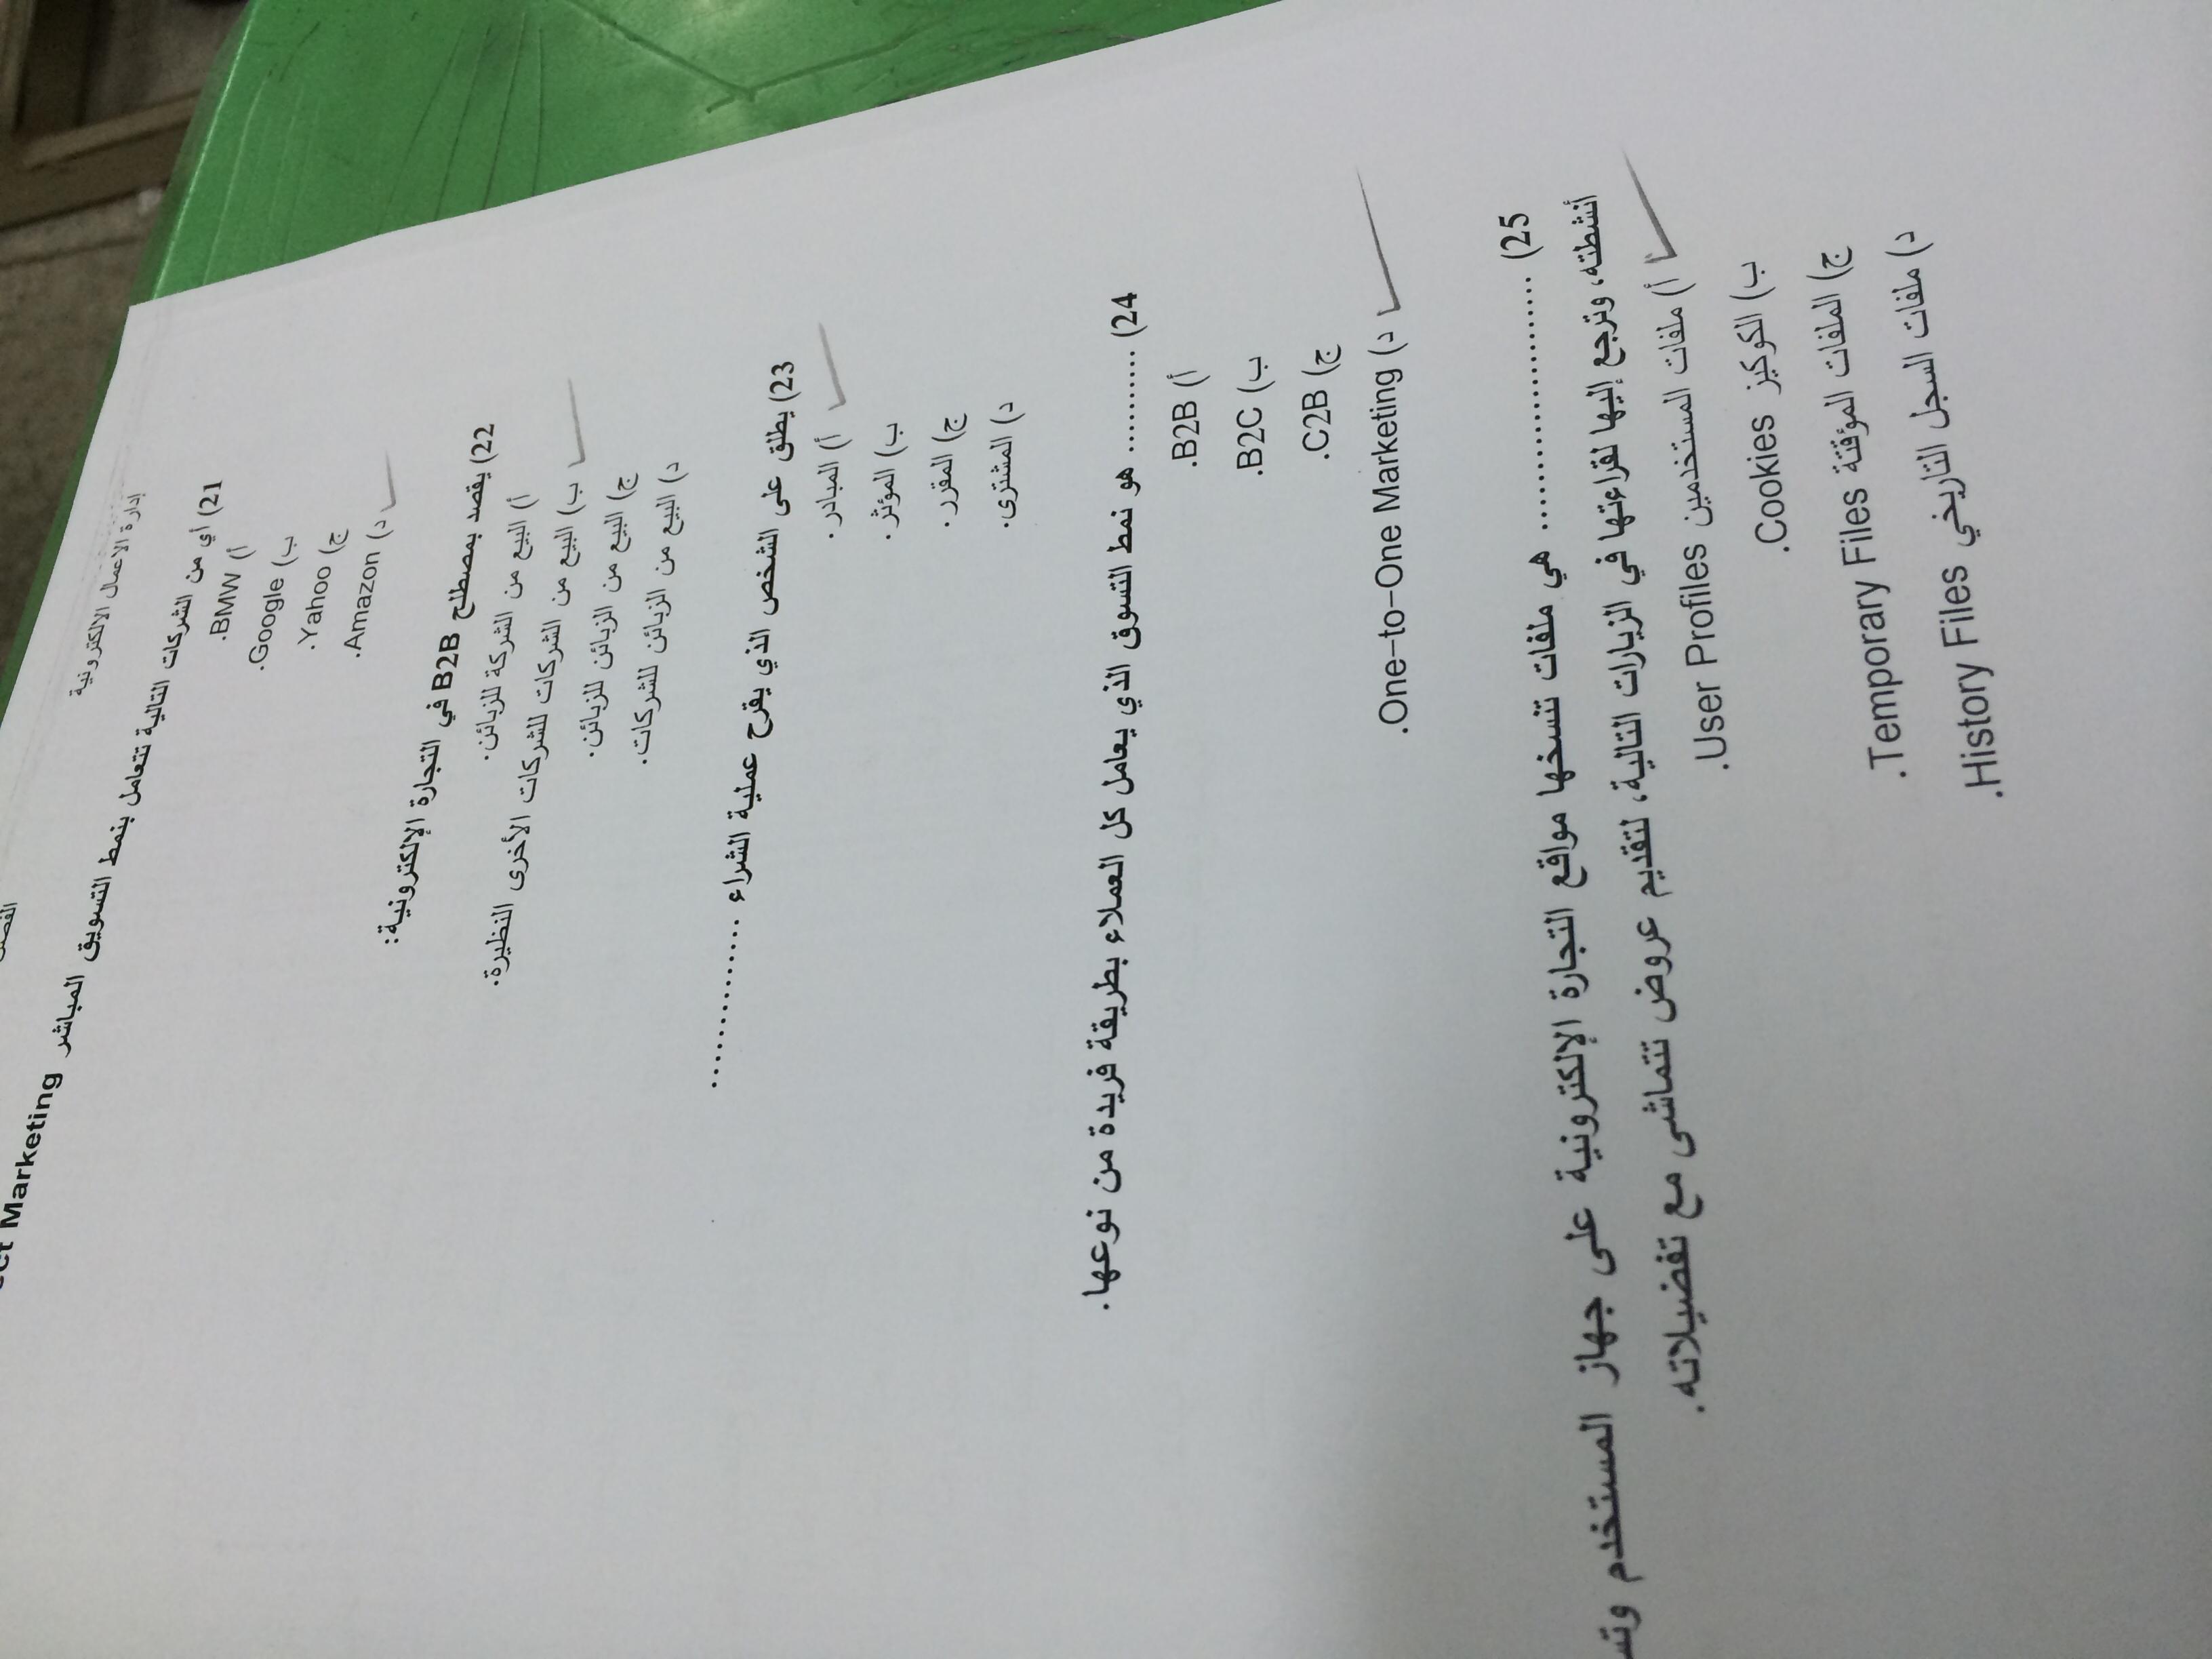 إدارة الاعمال الالكترونية
21) اي من الشركات التالية تتعامل بنمط التسويق المباشر ect Marketing
أ) BMW.
ب) Google.
ج) Yahoo.
د) Amazon.
22) يقصد بمصطلح B2B في التجارة الإلكترونية:
أ) البيع من الشركة للزبائن.
ب) البيع من الشركات للشركات الأخرى النظيرة.
ج) البيع من الزبائن للزبائن.
د) البيع من الزبائن للشركات.
23) يطلق على الشخص الذي يقرح عملية الشراء ...............
أ) المبادر.
ب) المؤثر.
ج) المقرر.
د) المشترى.
24) ........... هو نمط التسوق الذي يعامل كل العملاء بطريقة فريدة من نوعها.
أ) B2B.
ب) B2C.
ج) C2B.
د) One-to-One Marketing.
25) ...................... هي ملفات تنسخها مواقع التجارة الإلكترونية على جهاز المستخدم
أنشطته، وترجع إليها لقراءتها في الزيارات التالية، لتقديم عروض تتماشى مع تفضيلاته.
أ) ملفات المستخدمين User Profiles.
ب) الكوكيز Cookies.
ج) الملفات المؤقتة Temporary Files.
د) ملفات السجل التاريخي History Files.